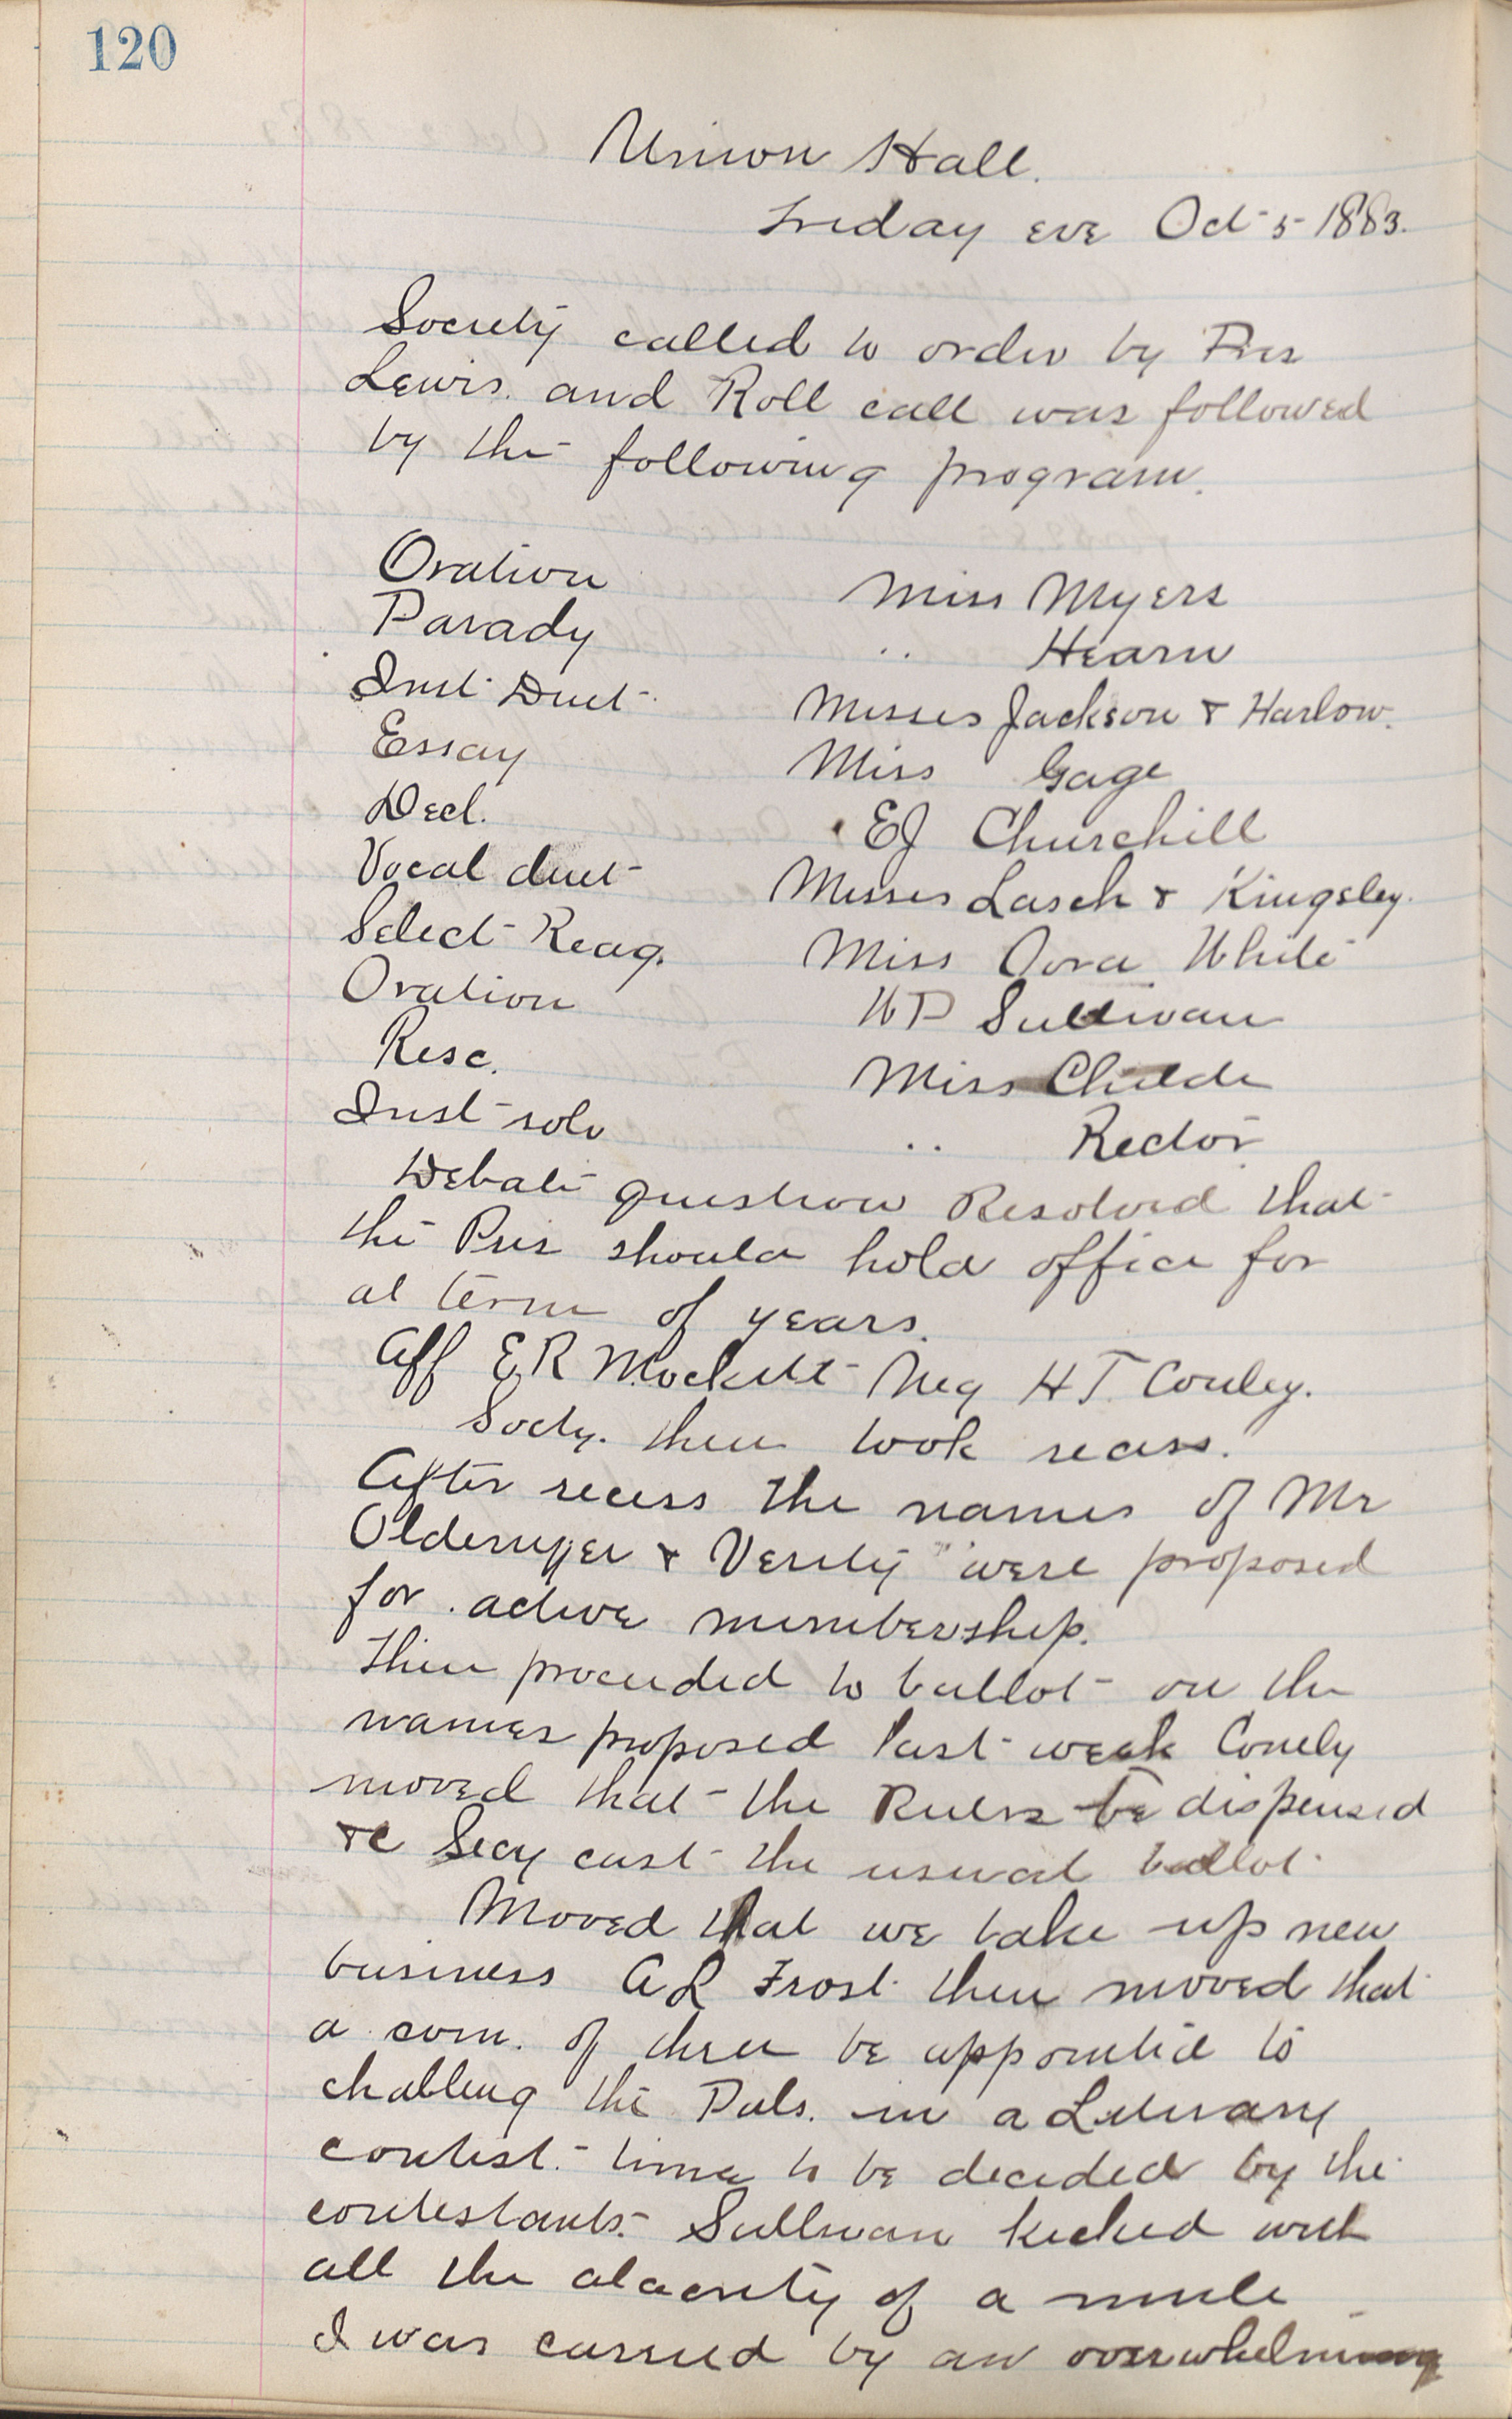 120
Union Hall.
Friday eve Oct 5 1883.
Society called to order by Pres
Lewis. and Roll call was followed
by the following program.
Oration Miss Myers
Parady " Hearn
Inst. Duet Misses Jackson & Harlow.
Essay Miss Gage
Decl. EJ Churchill
Vocal duet Misses Lasch & Kingsley.
Select Reag. Miss Dora White
Oration W P Sullivan
Resc. Miss Childe
Inst solo " Rector
Debate question Resolved that
the Pres should hold office for
at term of years.
Aff E R Mockett Neg H T. Conley.
Socty. then took recess.
After recess the names of Mr
Oldemyer & Verity were proposed
for active membership.
Then proceeded to ballot on the
names proposed last week Conely
moved that the Rules be dispensed
&c Secy cast the usual ballot
Moved that we take up new
business A L Frost then moved that
a com. of three be appointed to
challeng the Pals. in a Literary
contest. time to be decided by the
contestants. Sullivan kicked with
all the alacrity of a mule
I was carried by an overwhelming